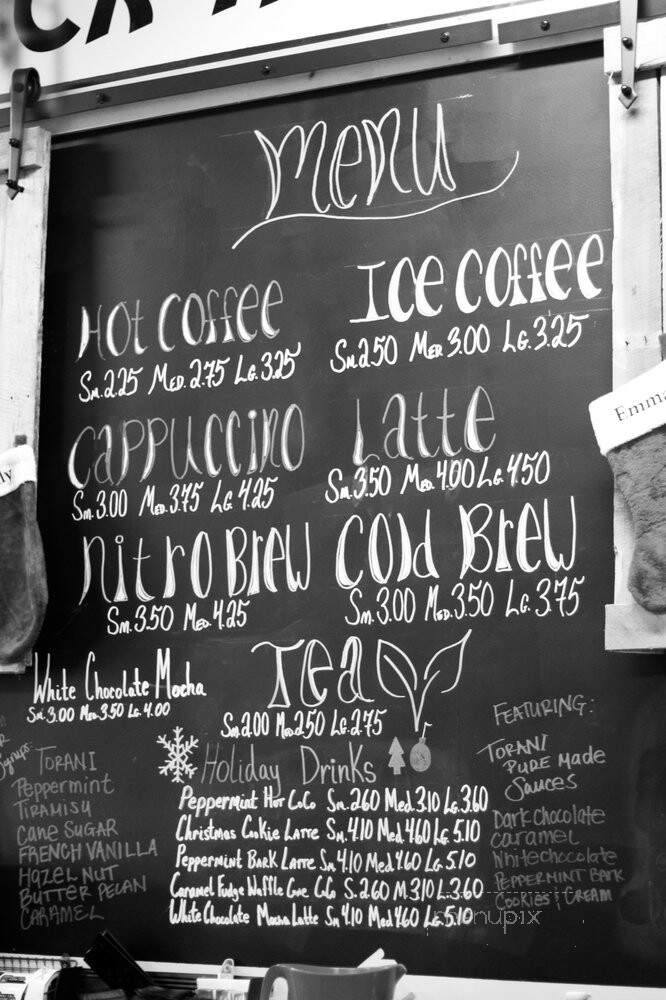 Menu
Hot Coffee
Sm. 2.25 Med. 2.75 Lg. 3.25
Ice Coffee
Sm 2.50 Med 3.00 Lg. 3.25
Cappuccino
Sm. 3.00 Med. 3.75 Lg. 4.25
Latte
Sm. 3.50 Med. 4.00 Lg. 4.50
Nitro Brew
Sm. 3.50 Med. 4.25
Cold Brew
Sm. 3.00 M. 3.50 Lg. 3.75
White Chocolate Mocha
Sm. 3.00 Med 3.50 Lg. 4.00
Tea
Sm 2.00 Med 2.50 Lg. 2.75
Syrups:
TORANI
Peppermint
TIRAMISU
CANE SUGAR
FRENCH VANILLA
HAZEL NUT
BUTTER PECAN
CARAMEL
Holiday Drinks
Peppermint Hot CoCo Sm. 2.60 Med. 3.10 Lg. 3.60
Christmas Cookie Latte Sm. 4.10 Med 4.60 Lg. 5.10
Peppermint Bark Latte Sm 4.10 Med 4.60 Lg. 5.10
Caramel Fudge Waffle Cone CoCo S. 2.60 M. 3.10 L. 3.60
White Chocolate Mocha Latte Sm 4.10 Med 4.60 Lg. 5.10
FEATURING:
TORANI
PURE Made
Sauces
Dark chocolate
Caramel
White chocolate
PEPPERMINT BARK
COOKIES & CREAM
Emma
menupix